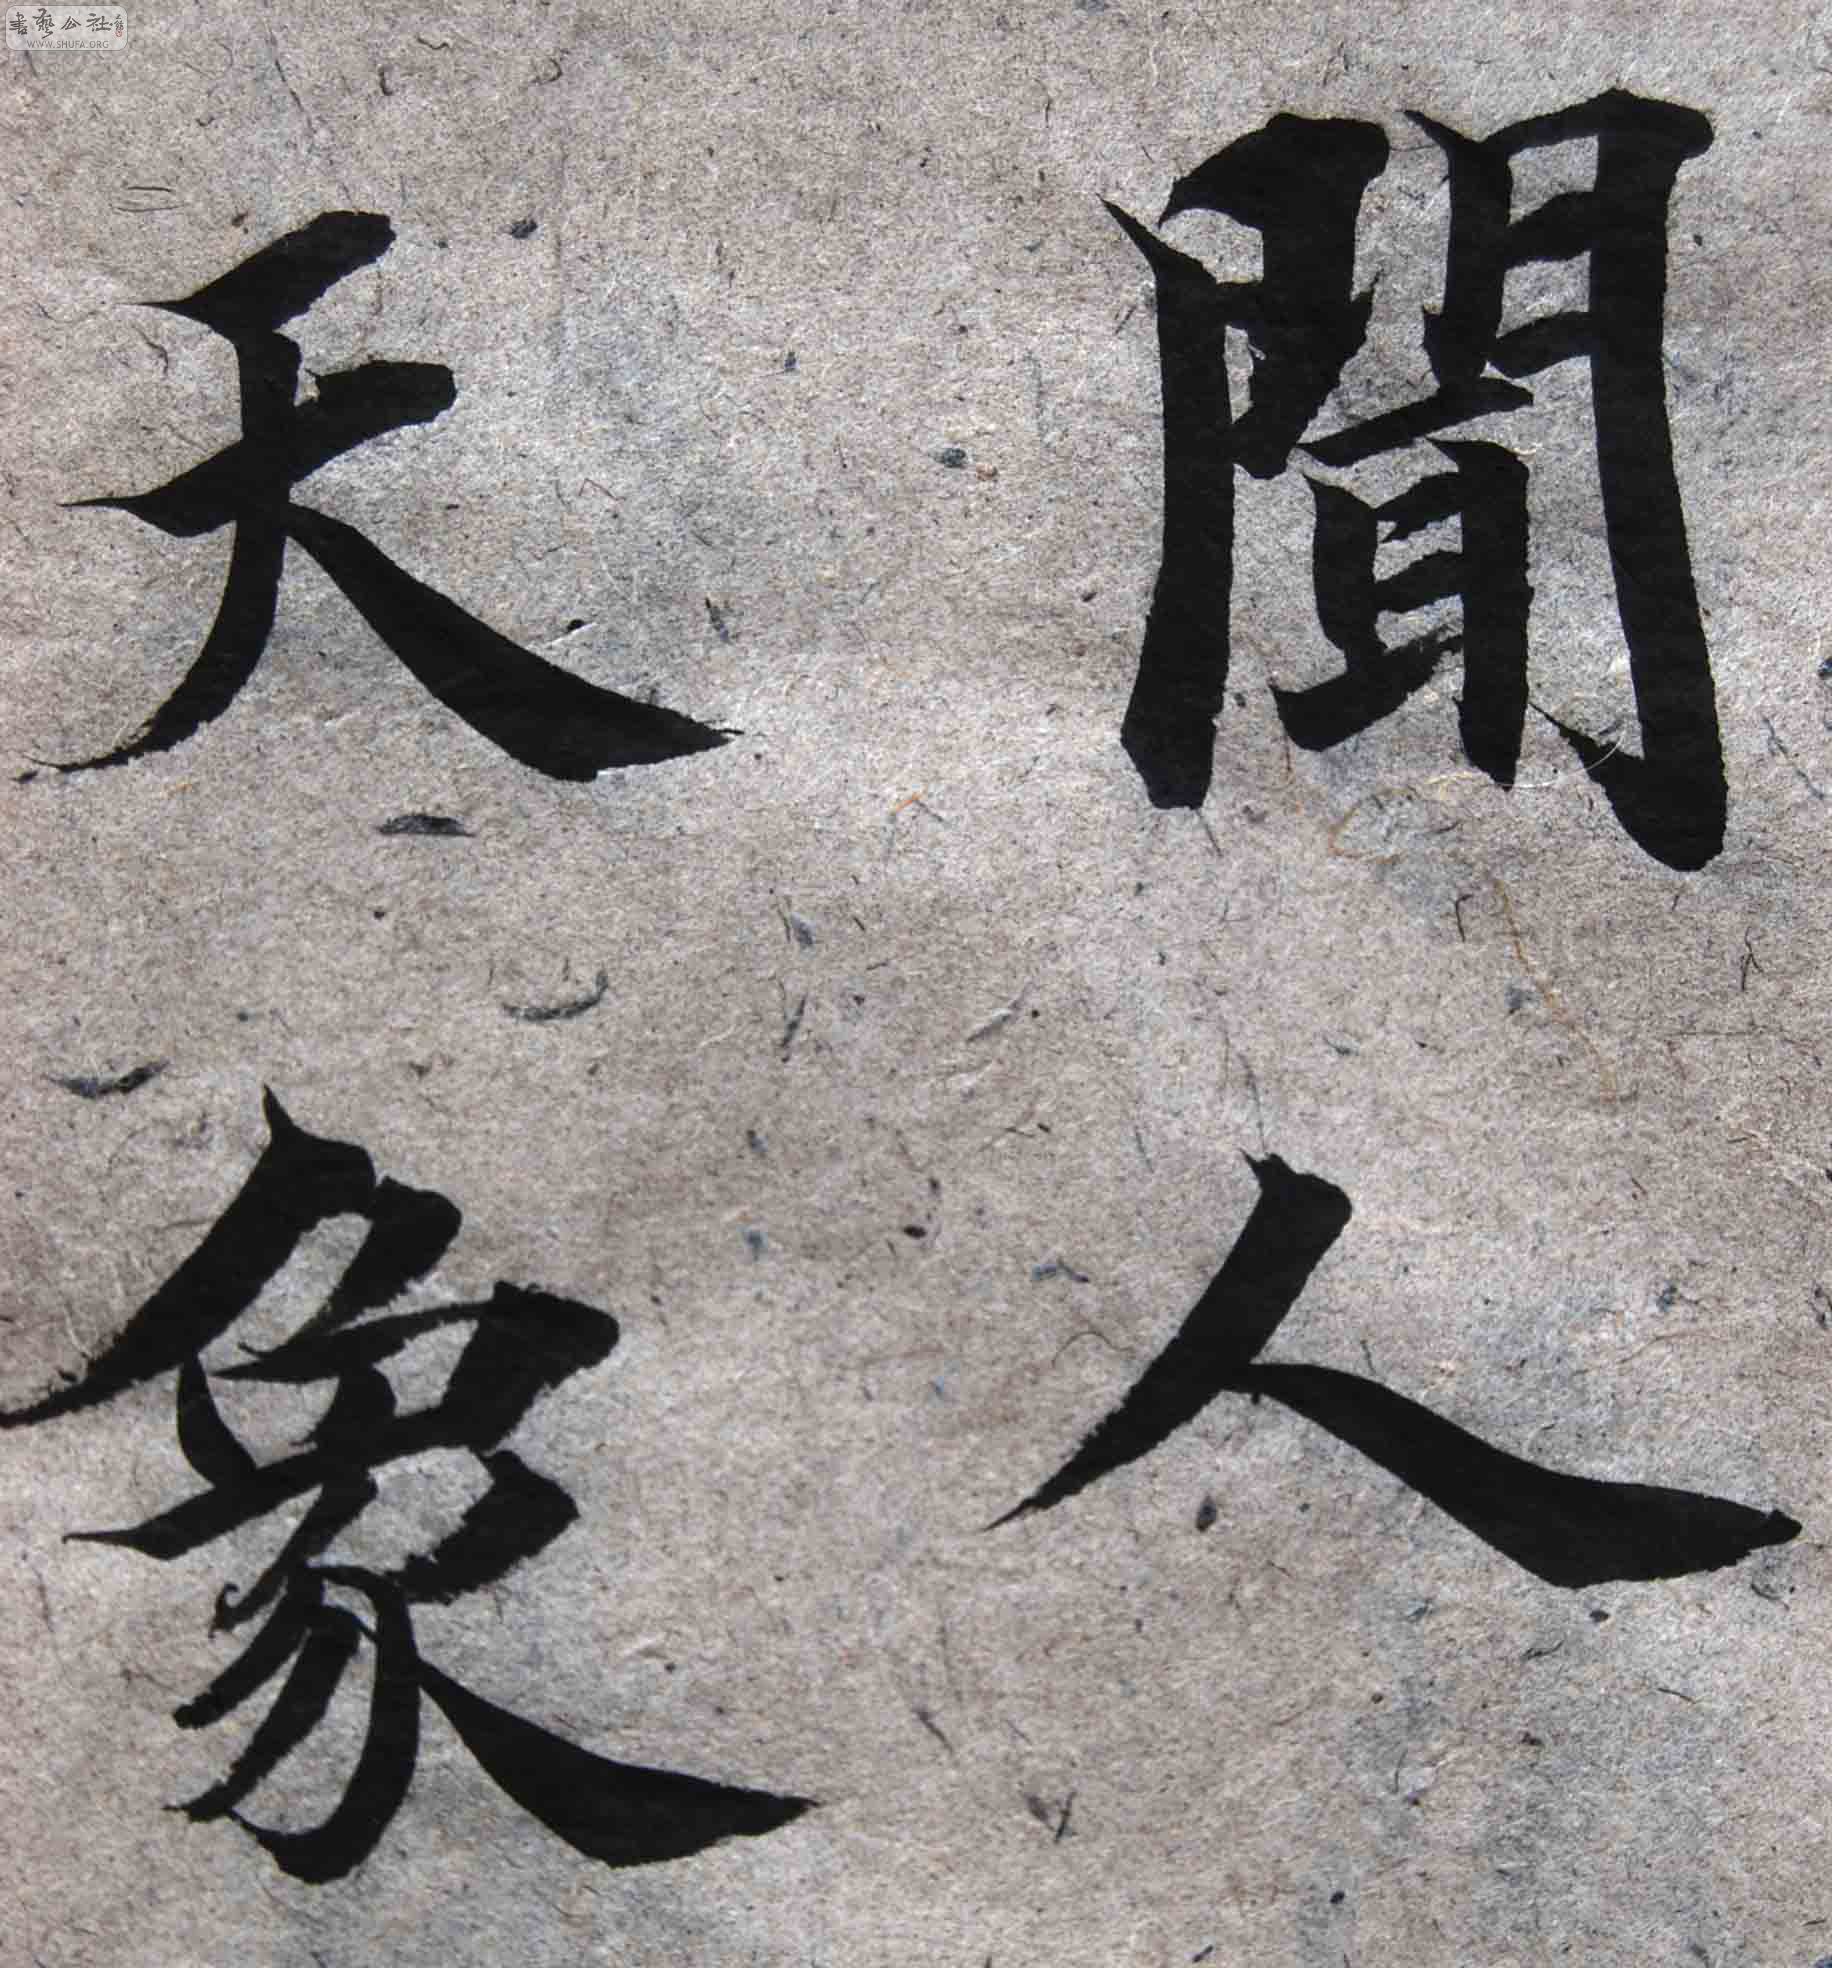 聞人
天象
書藝公社
WWW.SHUFA.ORG